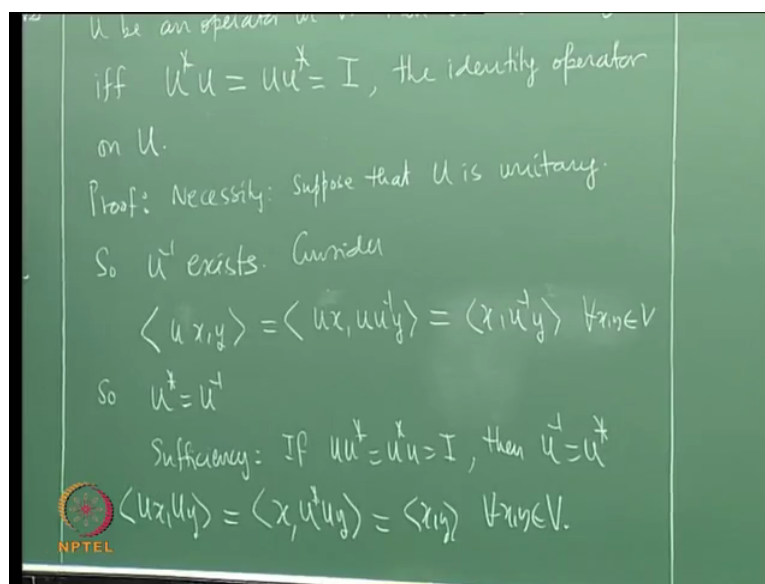 U be an operator
iff U*U = UU* = I, the identity operator
on U.
Proof: Necessity: Suppose that U is unitary.
So U⁻¹ exists. Consider
⟨Ux,y⟩ = ⟨Ux, UU⁻¹y⟩ = ⟨x, U⁻¹y⟩ ∀x,y∈V
So U* = U⁻¹
Sufficiency: If UU* = U*U = I, then U⁻¹ = U*
⟨Ux,Uy⟩ = ⟨x, U*Uy⟩ = ⟨x,y⟩ ∀x,y∈V.
NPTEL